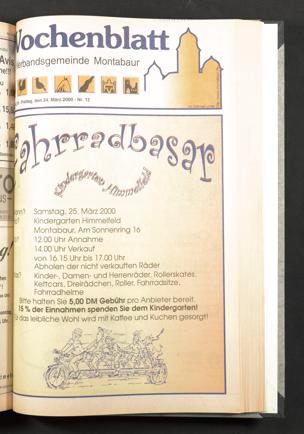 Wochenblatt
Verbandsgemeinde Montabaur
Freitag, den 24. März 2000 · Nr. 12
Fahrradbasar
Kindergarten Himmelfeld
Samstag, 25. März 2000
Kindergarten Himmelfeld
Montabaur, Am Sonnenring 16
12.00 Uhr Annahme
14.00 Uhr Verkauf
von 16.15 Uhr bis 17.00 Uhr
Abholen der nicht verkauften Räder
Kinder-, Damen- und Herrenräder, Rollerskates,
Kettcars, Dreirädchen, Roller, Fahrradsitze,
Fahrradhelme
Bitte halten Sie 5,00 DM Gebühr pro Anbieter bereit.
15 % der Einnahmen spenden Sie dem Kindergarten!
das leibliche Wohl wird mit Kaffee und Kuchen gesorgt!